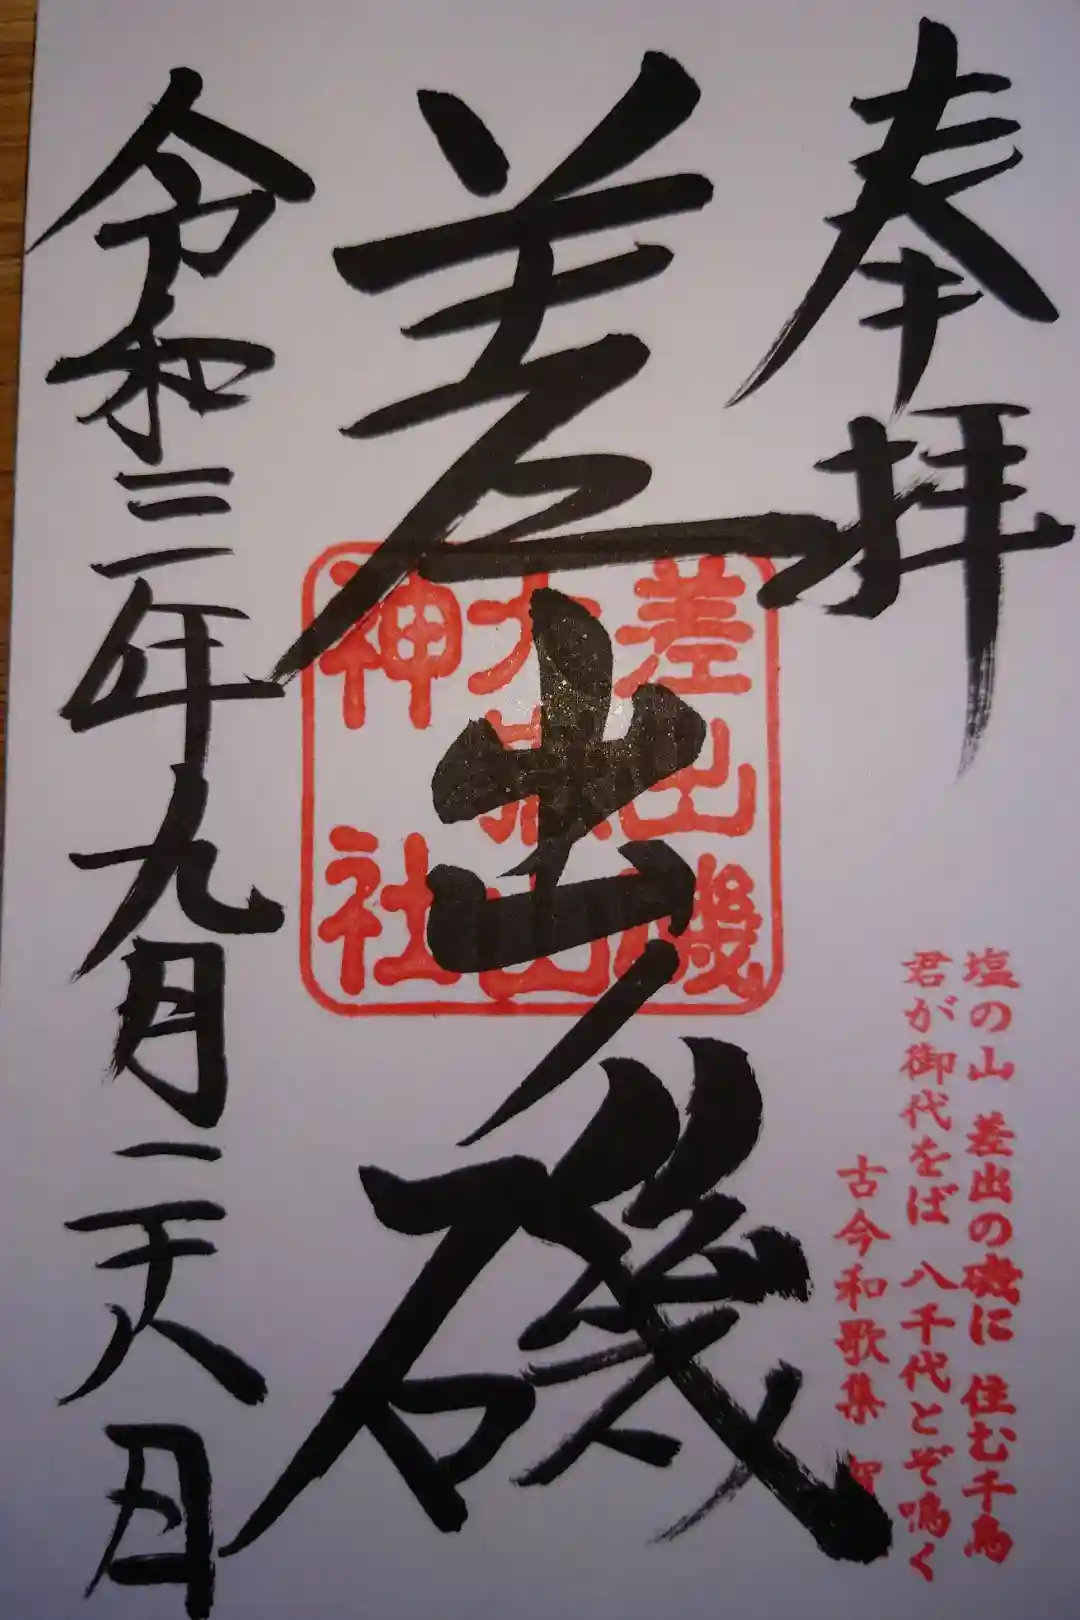 奉拝
塩の山 差出の磯に 住む千鳥
君が御代をば 八千代とぞ鳴く
古今和歌集 賀
差出磯
差出磯
大嶽山
神社
令和三年九月二十八日